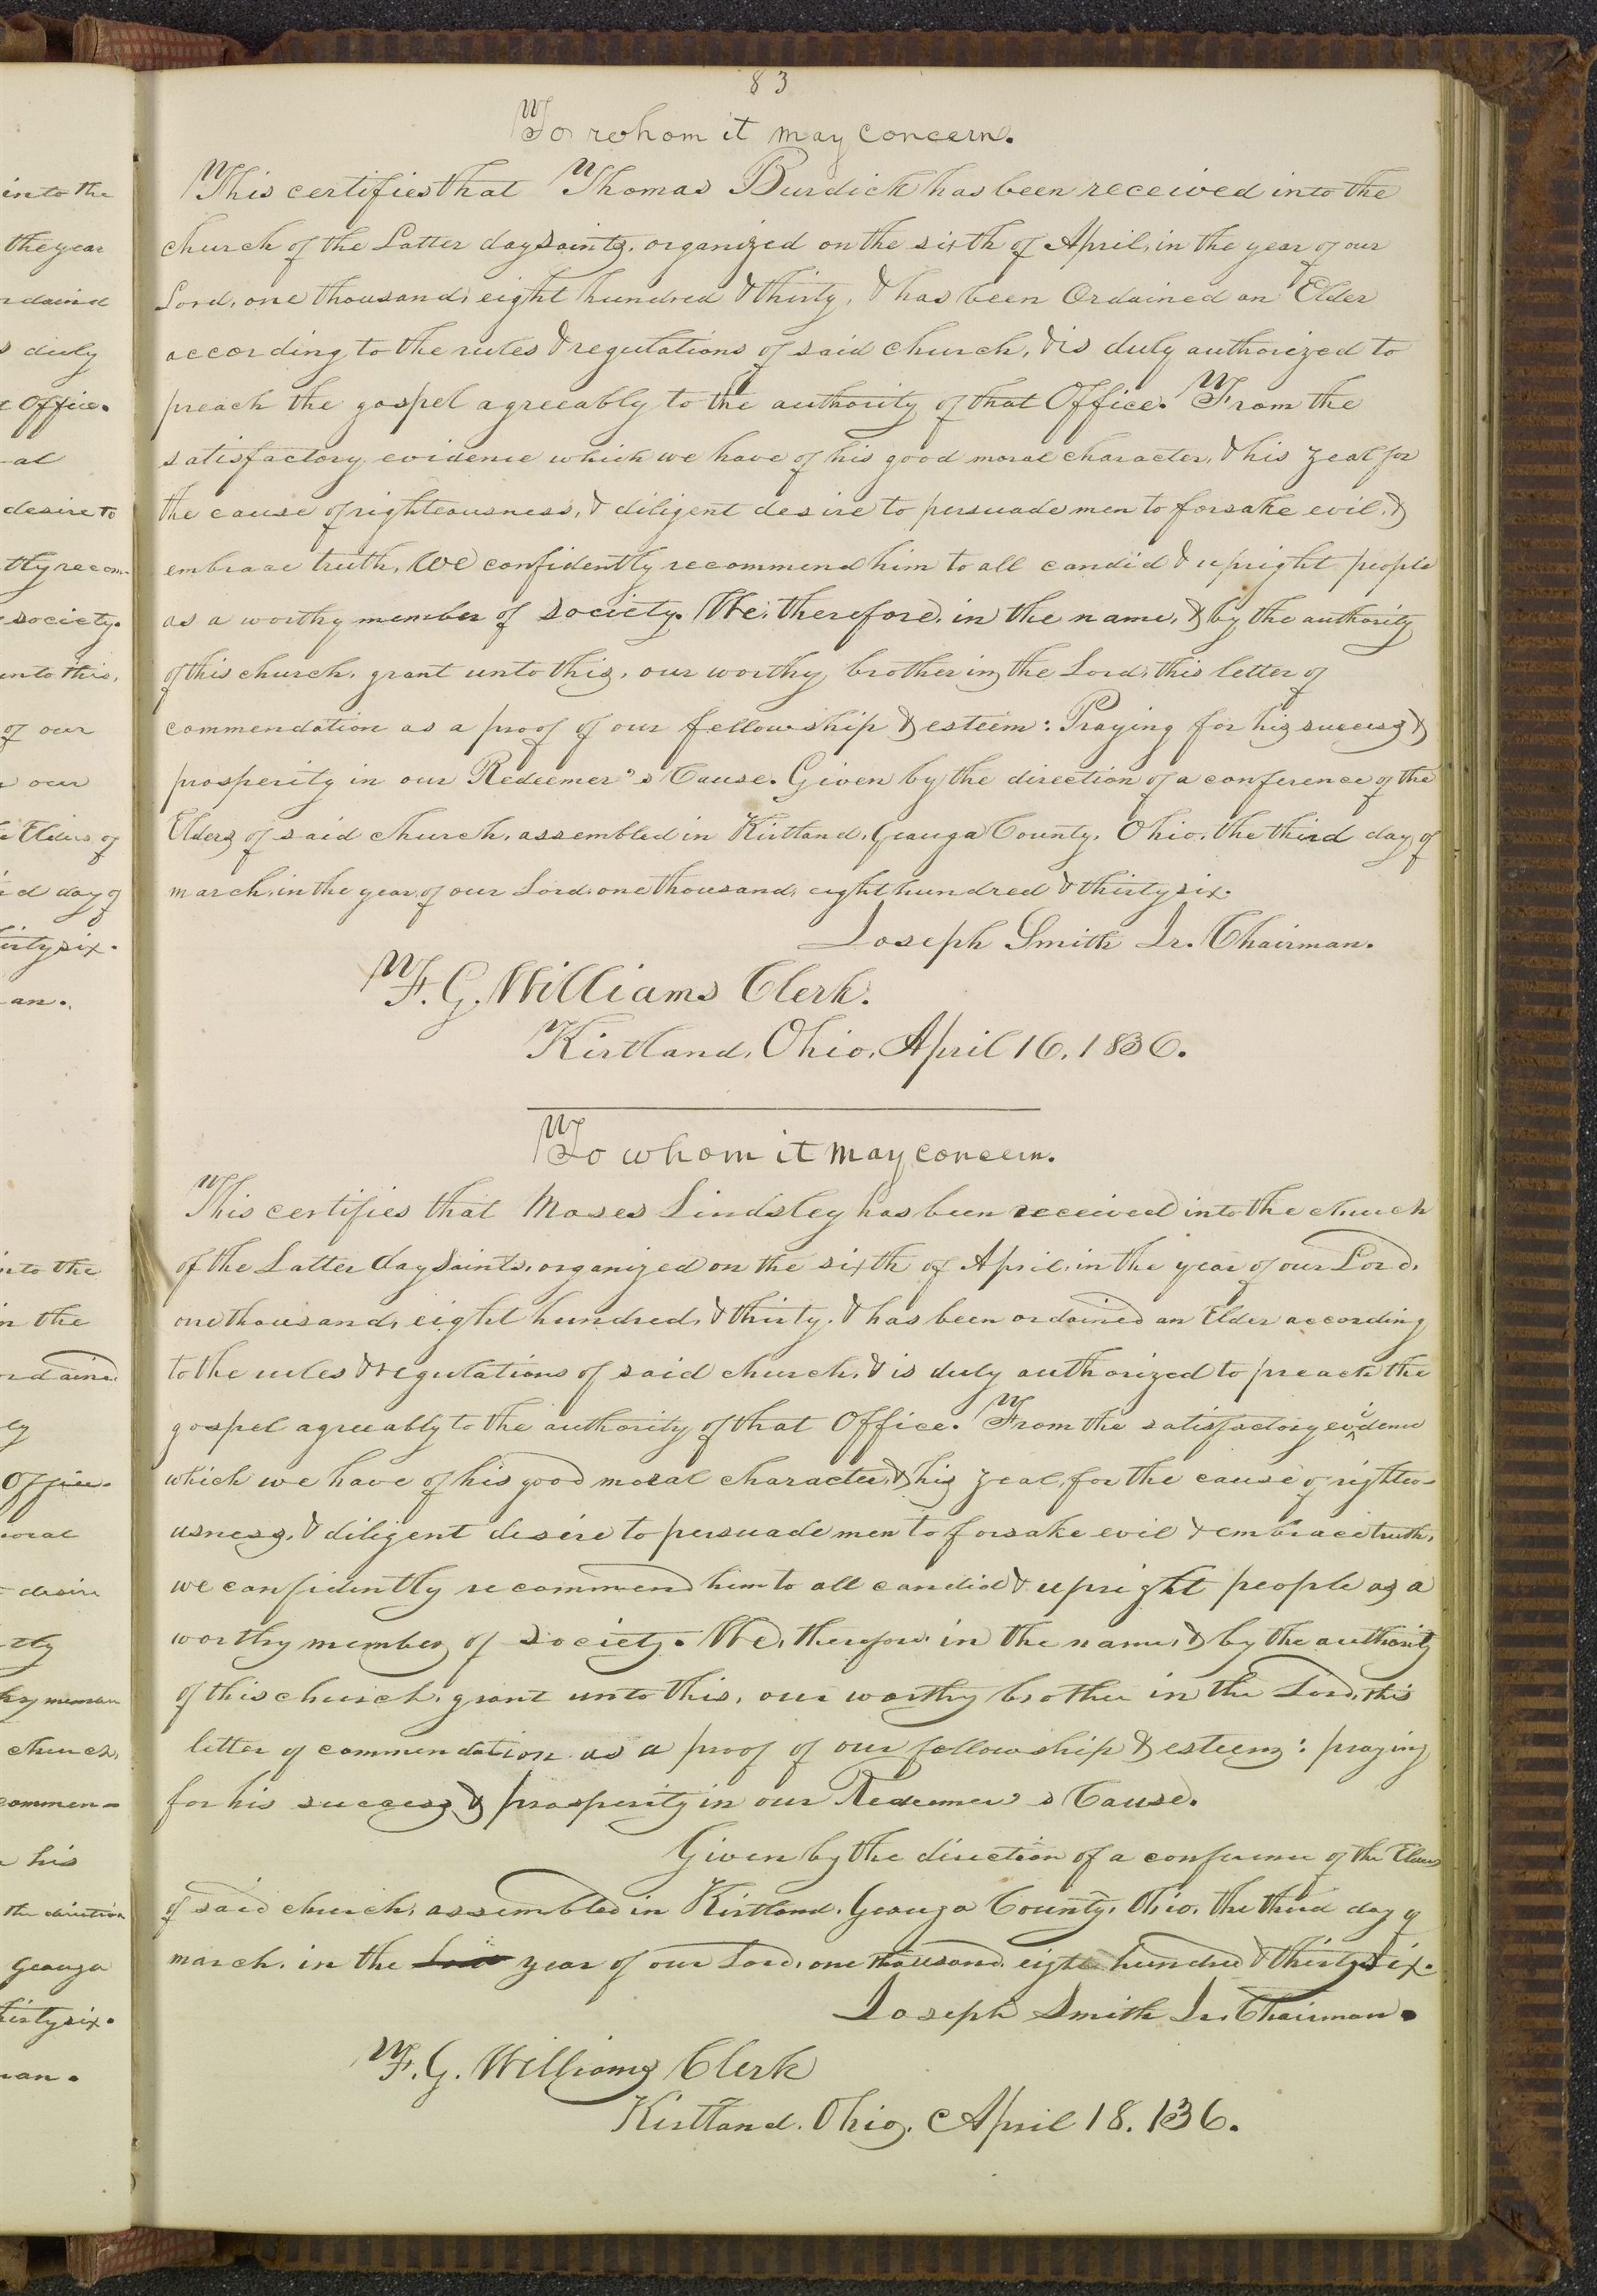 83
To whom it may concern.
This certifies that Thomas Burdick has been received into the
church of the Latter day saints, organized on the sixth of April, in the year of our
Lord, one thousand, eight hundred & thirty, & has been Ordained an Elder
according to the rules & regulations of said church, & is duly authorized to
preach the gospel agreeably to the authority of that Office. From the
satisfactory evidence which we have of his good moral character, & his zeal for
the cause of righteousness, & diligent desire to persuade men to forsake evil, &
embrace truth, We confidently recommend him to all candid & upright people
as a worthy member of society. We, therefore, in the name, & by the authority
of this church, grant unto this, our worthy brother in the Lord, this letter of
commendation as a proof of our fellowship & esteem: Praying for his success &
prosperity in our Redeemer's Cause. Given by the direction of a conference of the
Elders of said church, assembled in Kirtland, Geauga County, Ohio, the third day of
march, in the year of our Lord, one thousand, eight hundred & thirty six.
Joseph Smith Jr. Chairman.
F. G. Williams Clerk.
Kirtland, Ohio, April 16, 1836.
To whom it may concern.
This certifies that Moses Lindsley has been received into the church
of the Latter day Saints, organized on the sixth of April, in the year of our Lord,
one thousand, eight hundred, & thirty, & has been ordained an Elder according
to the rules & regulations of said church, & is duly authorized to preach the
gospel agreeably to the authority of that Office. From the satisfactory evidence
which we have of his good moral character, & his zeal, for the cause of righteo-
usness, & diligent desire to persuade men to forsake evil & embrace truth,
we confidently recommend him to all candid & upright people as a
worthy member of society. We, therefore, in the name, & by the authority
of this church, grant unto this, our worthy brother in the Lord, this
letter of commendation as a proof of our fellowship & esteem: praying
for his success & prosperity in our Redeemer's Cause.
Given by the direction of a conference of the Elders
of said church, assembled in Kirtland, Geauga County, Ohio, the third day of
march, in the year of our Lord, one thousand, eight hundred & thirty six.
Joseph Smith Jr. Chairman.
F. G. Williams Clerk
Kirtland, Ohio, April 18. 136.
into the
the year
rdaind
s duly
t Office.
al
desire to
tly recom-
society.
unto this,
of our
r our
Elders of
d day of
irty six.
an.
nto the
n the
rdained
ly
Office.
oral
desire
tly
hy member
church,
commen-
his
the direction
Geauga
hirty six.
man.